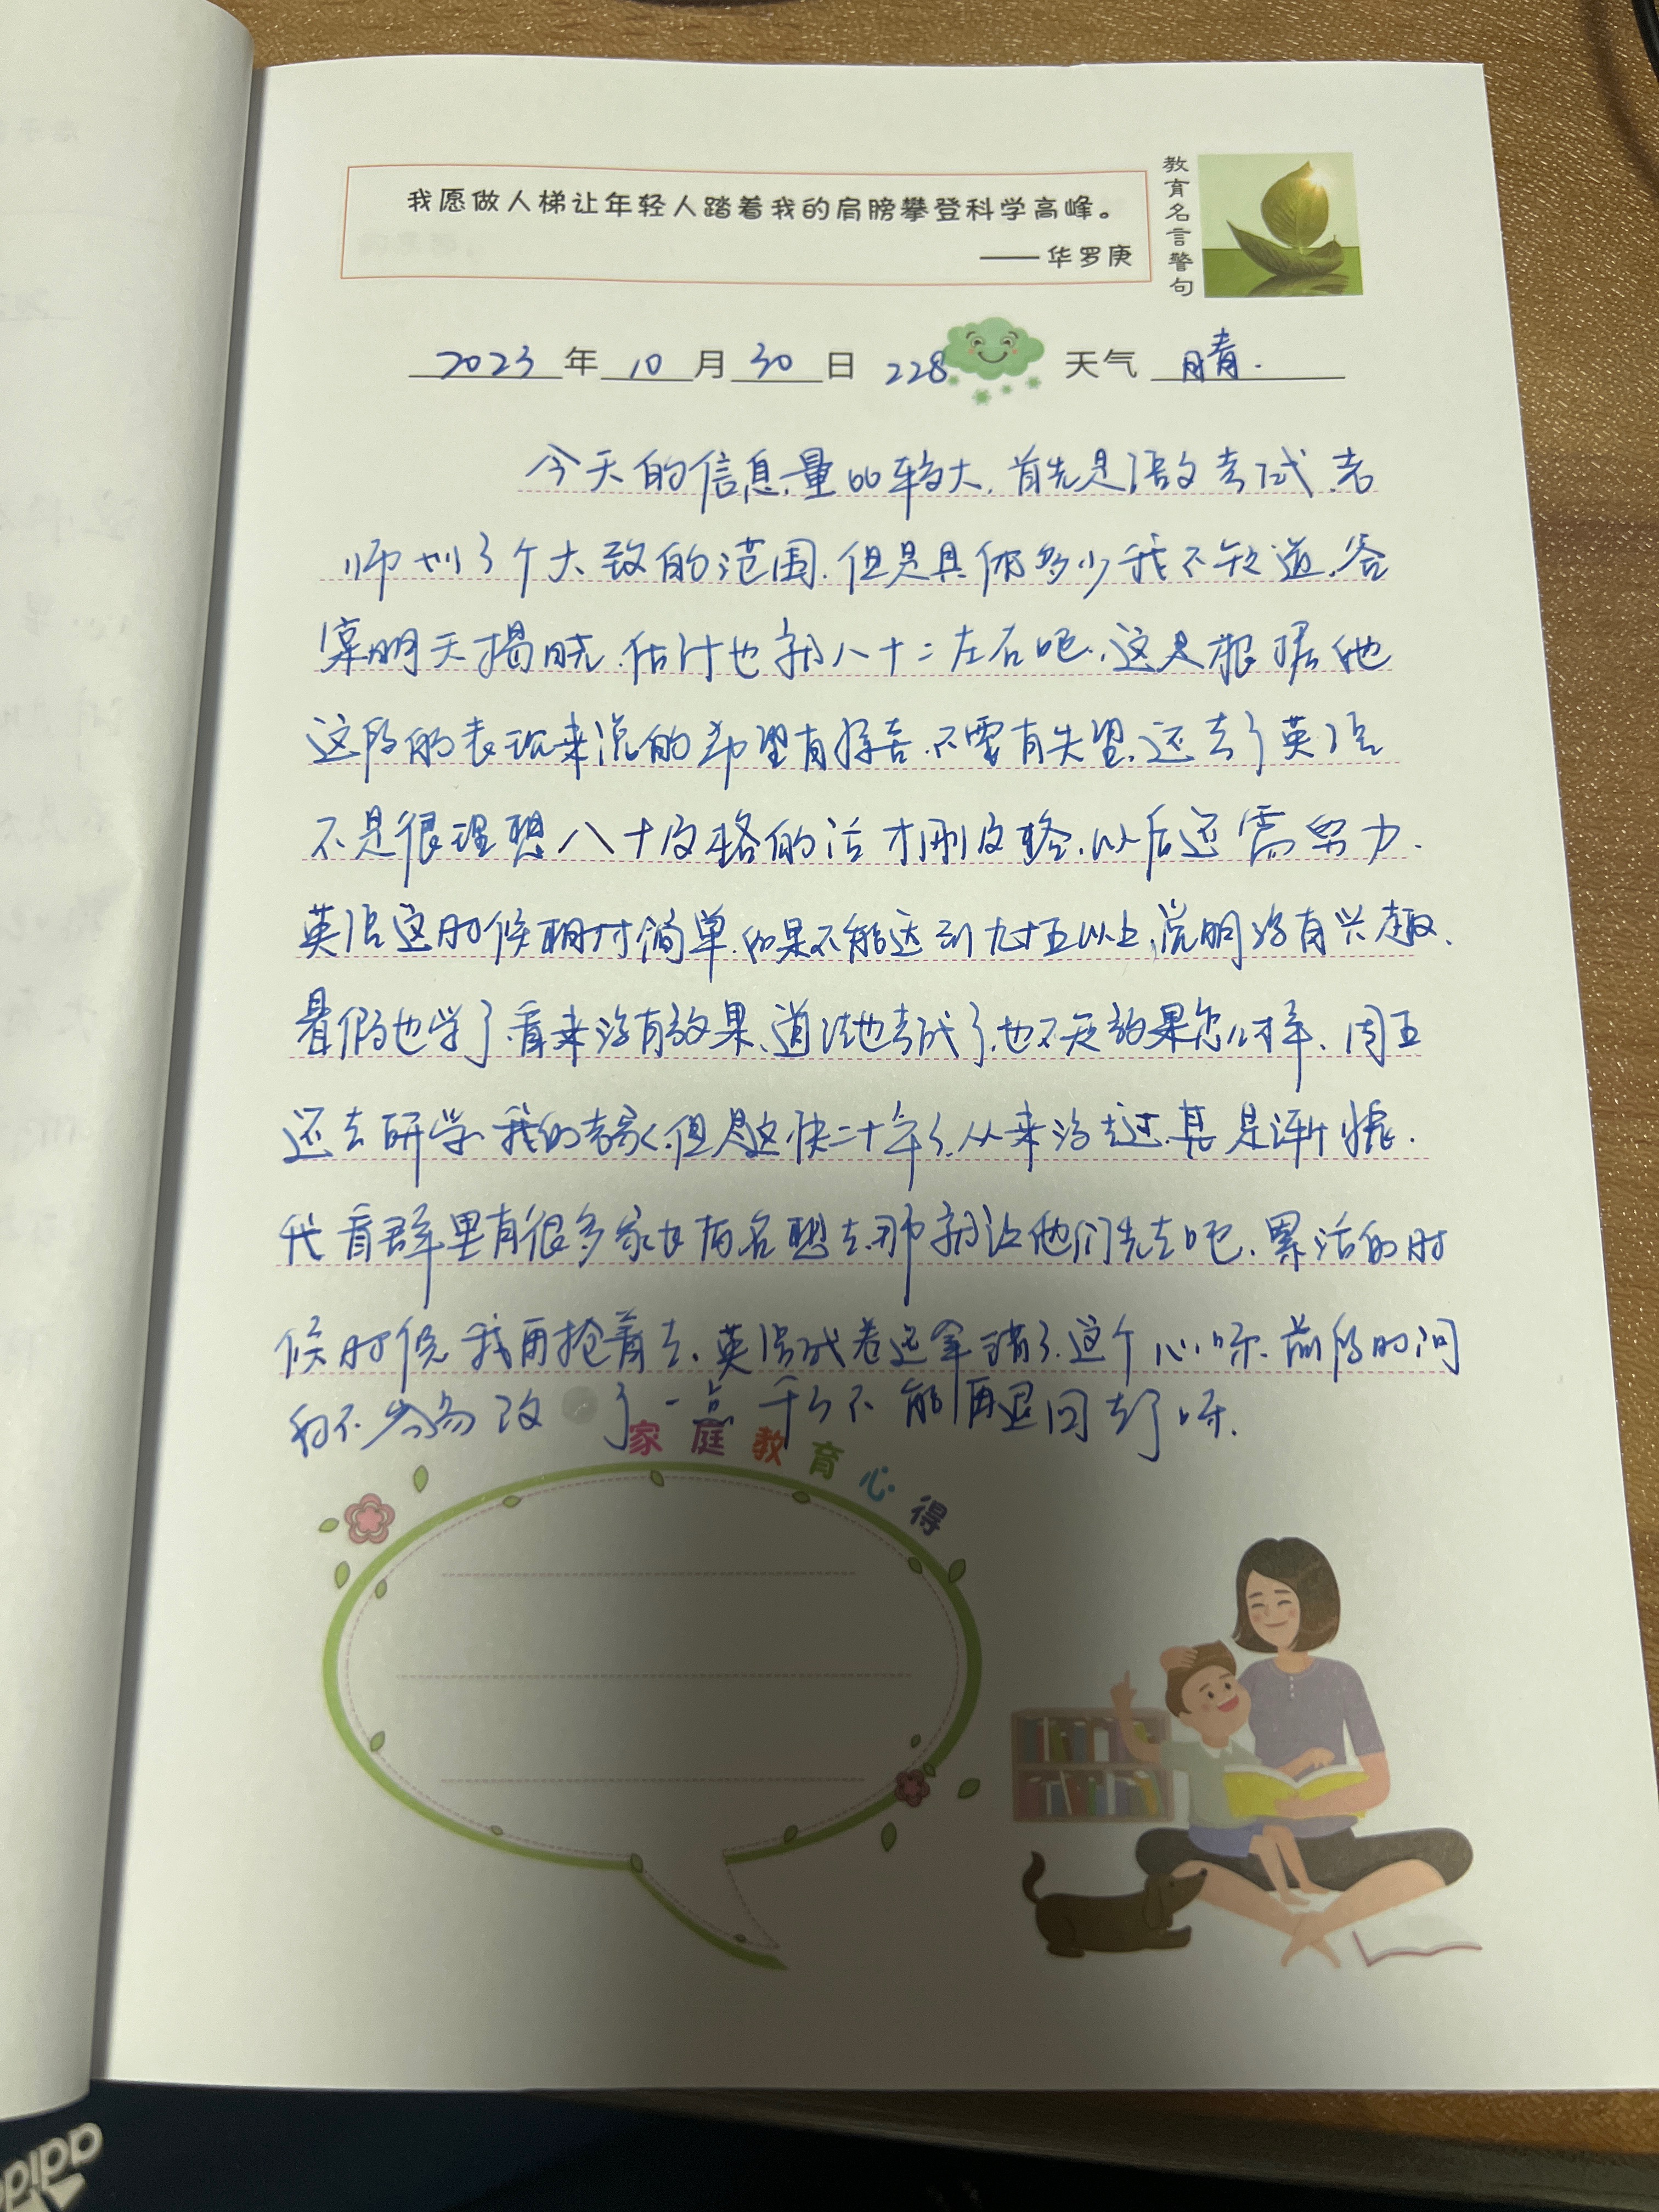 我愿做人梯让年轻人踏着我的肩膀攀登科学高峰。
——华罗庚
教育名言警句
2023年10月30日 228 天气 晴.
今天的信息量比较大,首先是语文考试,老
师划了个大致的范围,但是具体多少我不知道,答
案明天揭晓,估计也就八十二左右吧,这是根据他
这段的表现来说的希望有惊喜,不要有失望,还考了英语
不是很理想八十及格的话才刚及格,以后还需努力.
英语这时候相对简单,如果不能达到九十五以上,说明没有兴趣,
暑假也学了,看来没有效果,道法也考试了,也不知效果怎么样,周五
还去研学我的老家,但是这快二十年了,从来没去过,真是惭愧.
我看群里有很多家长报名想去,那就让他们先去吧,累活的时
候时候我再抢着去,英语试卷还拿错了,这个心呀,前段的问
的不容易改了一点千万不能再退回去了呀.
家庭教育心得
adidas